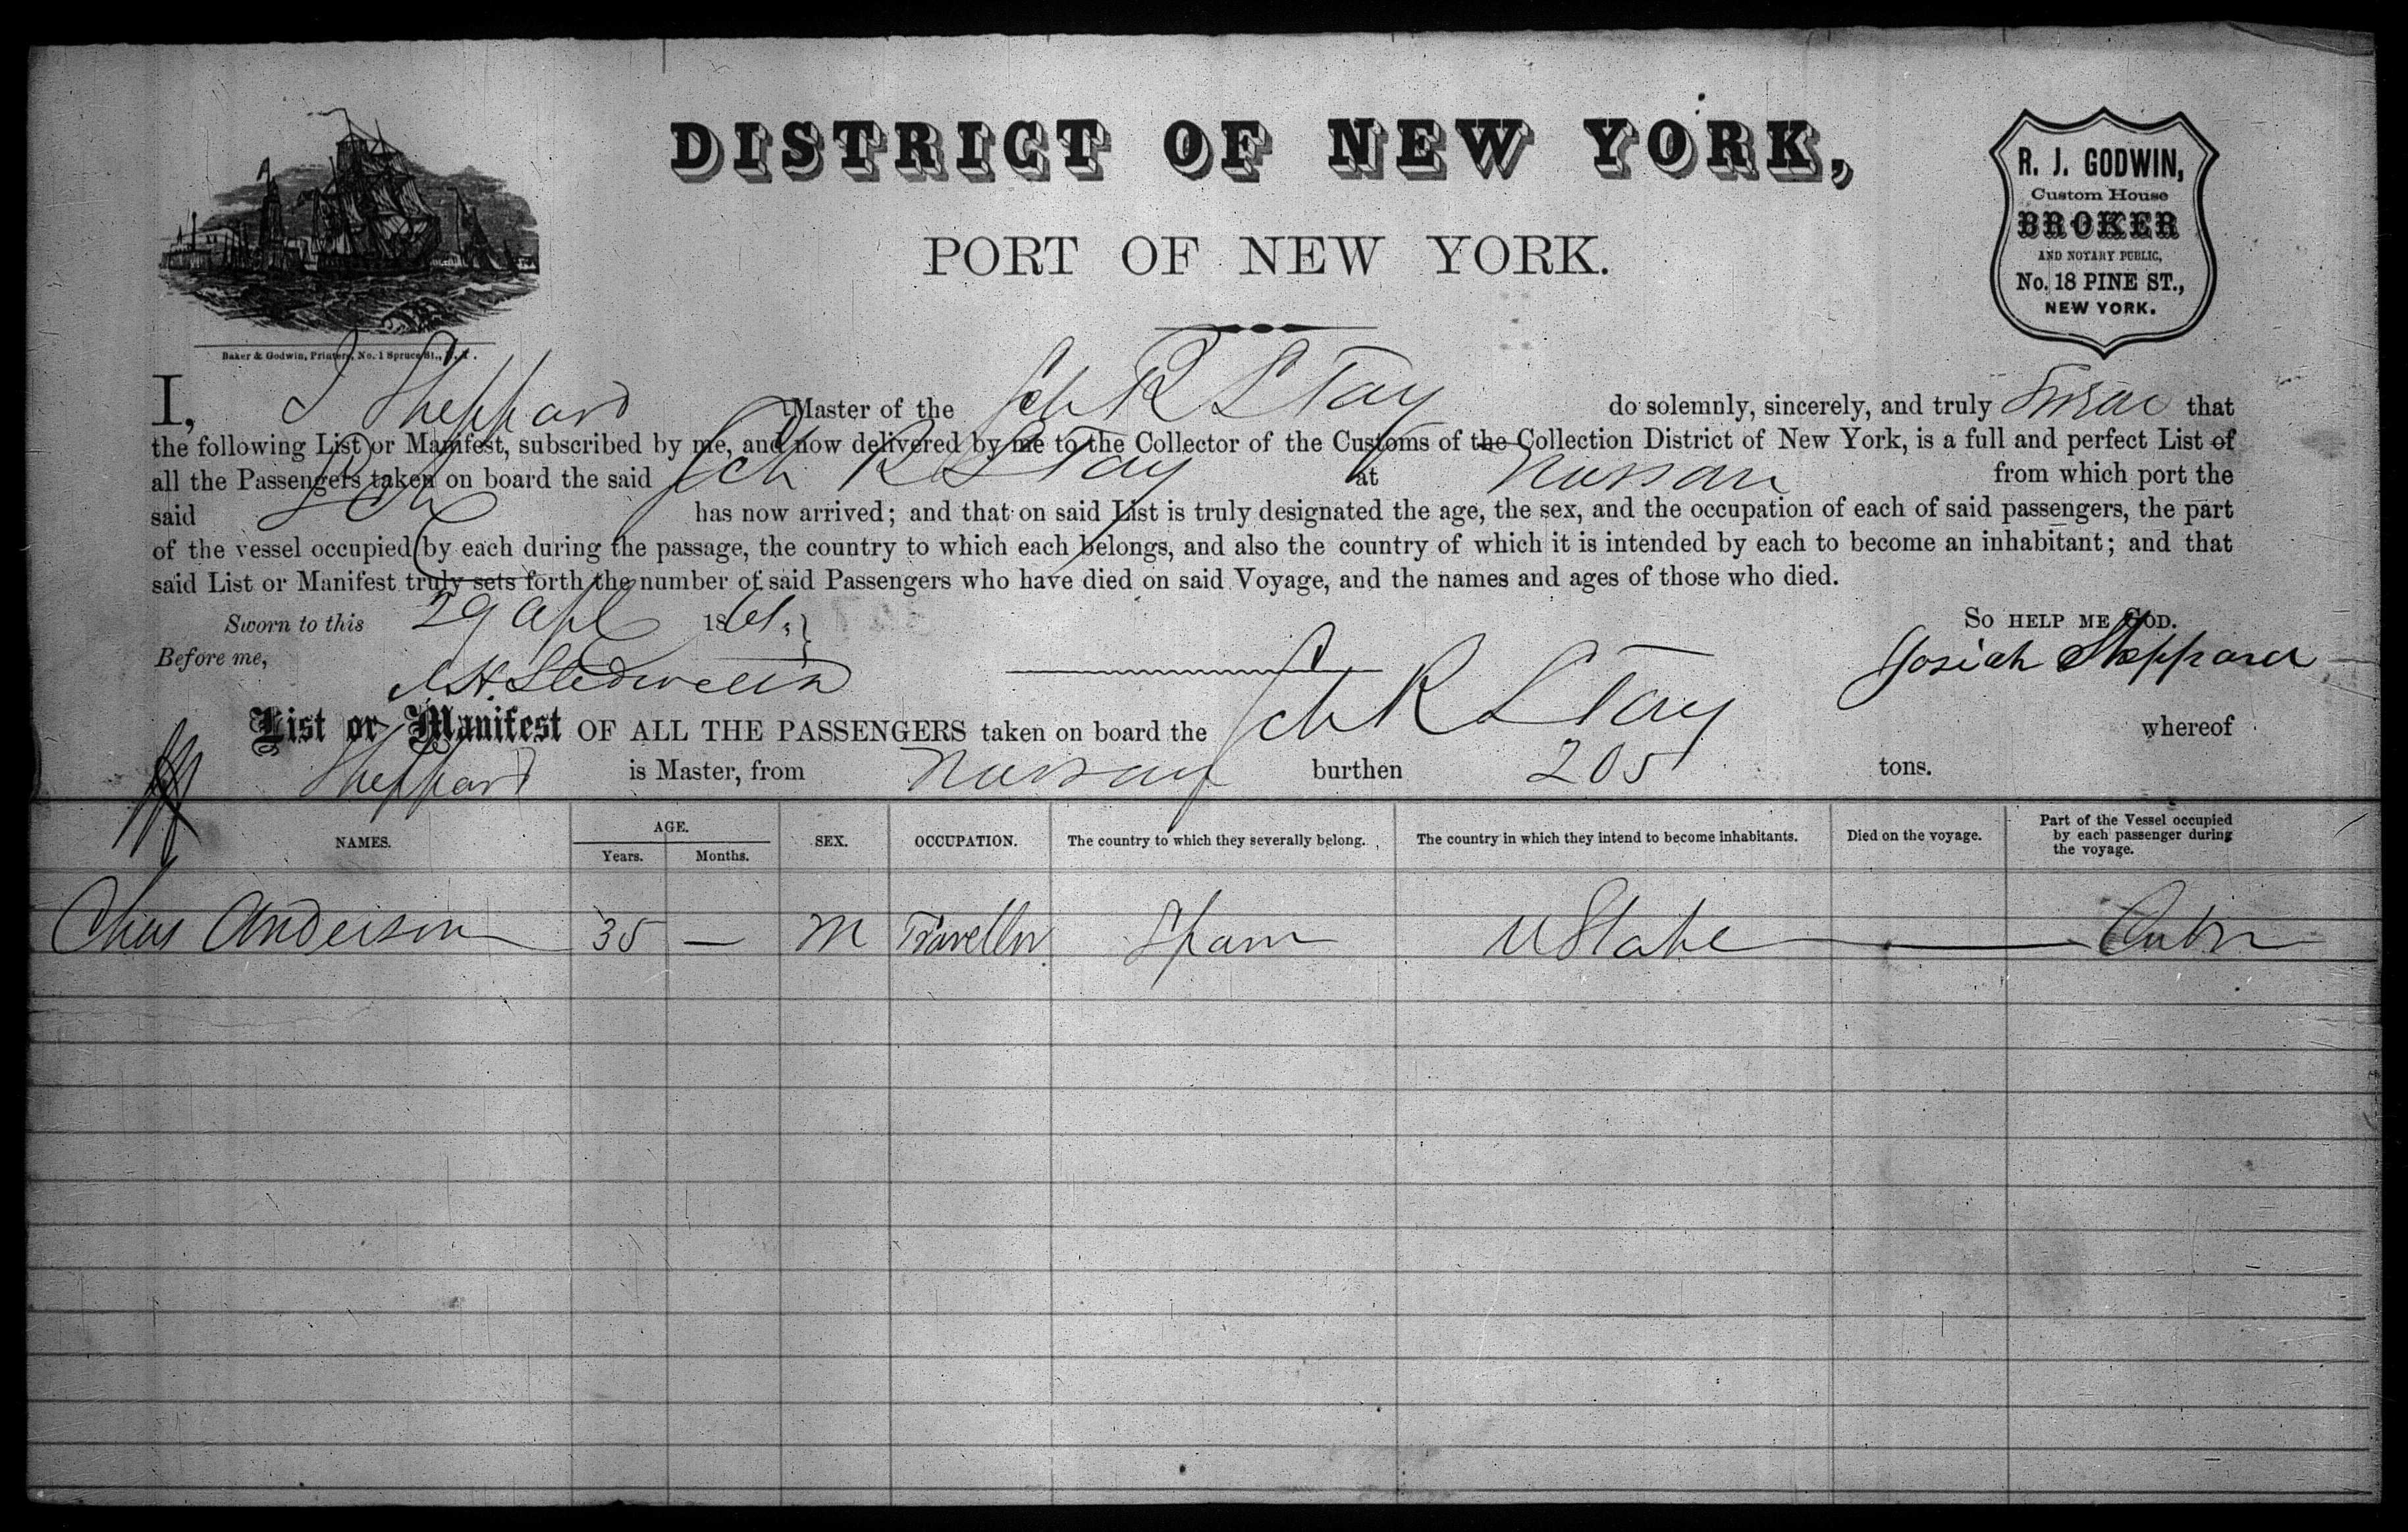 DISTRICT OF NEW YORK,
PORT OF NEW YORK.
R. J. GODWIN,
Custom House
BROKER
AND NOTARY PUBLIC,
No. 18 PINE ST.,
NEW YORK.
Baker & Godwin, Printers, No. 1 Spruce St., N. Y.
I, J Sheppard Master of the Sch R S Tay do solemnly, sincerely, and truly Swear that
the following List or Manifest, subscribed by me, and now delivered by me to the Collector of the Customs of the Collection District of New York, is a full and perfect List of
all the Passengers taken on board the said Sch R S Tay at Nassau from which port the
said Sch has now arrived; and that on said List is truly designated the age, the sex, and the occupation of each of said passengers, the part
of the vessel occupied by each during the passage, the country to which each belongs, and also the country of which it is intended by each to become an inhabitant; and that
said List or Manifest truly sets forth the number of said Passengers who have died on said Voyage, and the names and ages of those who died.
Sworn to this 29 Apl 1861, So HELP ME GOD.
Before me, Josiah Sheppard
List or Manifest OF ALL THE PASSENGERS taken on board the Sch R S Tay whereof
Sheppard is Master, from Nassau burthen 205 tons.
NAMES. AGE. Years. Months. SEX. OCCUPATION. The country to which they severally belong. The country in which they intend to become inhabitants. Died on the voyage. Part of the Vessel occupied by each passenger during the voyage.
Chas Anderson 35 — M Traveller Spain U State — Cabin